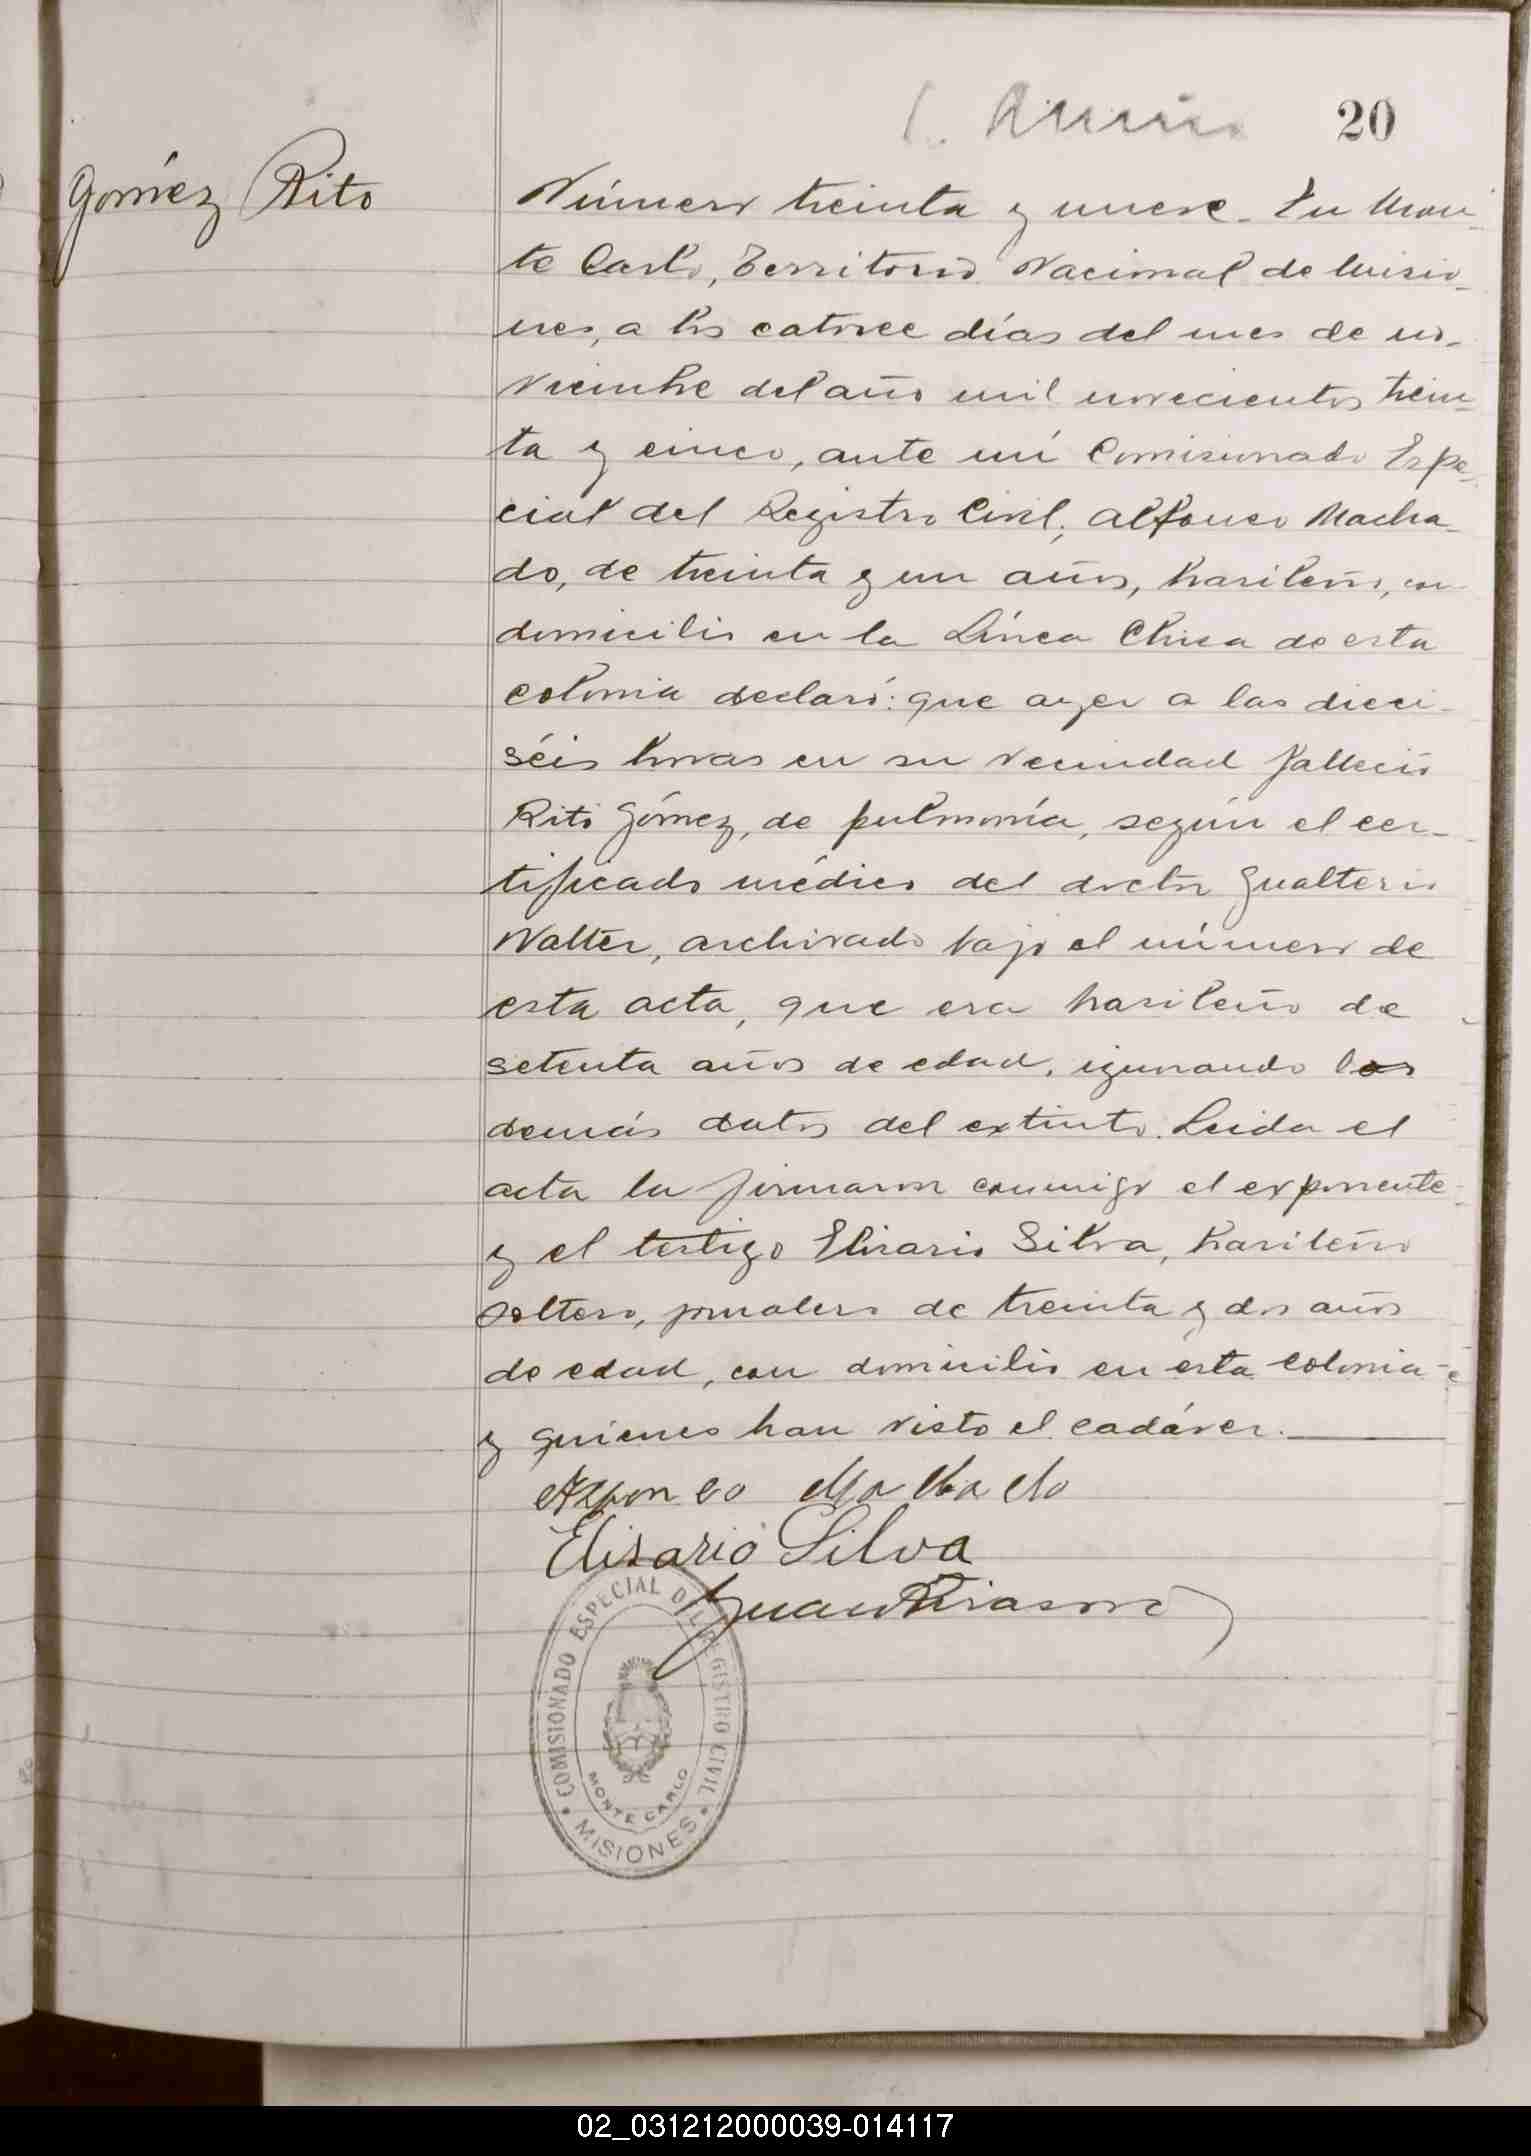 20
Gómez Rito
Número treinta y nueve. En Mon-
te Carlo, Territorio Nacional de Misio-
nes, a los catorce días del mes de no-
viembre del año mil novecientos trein-
ta y cinco, ante mí Comisionado Espe-
cial del Registro Civil, Alfonso Macha-
do, de treinta y un años, brasileño, con
domicilio en la Línea Chica de esta
colonia declaró: que ayer a las dieci-
séis horas en su vecindad falleció
Rito Gómez, de pulmonía, según el cer-
tificado médico del doctor Gualterio
Walter, archivado bajo el número de
esta acta, que era brasileño de
setenta años de edad, ignorando los
demás datos del extinto. Leida el
acta la firmaron conmigo el exponente
y el testigo Elisario Silva, brasileño
soltero, jornalero de treinta y dos años
de edad, con domicilio en ésta colonia
y quienes han visto el cadáver.
Machado
Elisario Silva
Juan
COMISIONADO ESPECIAL DEL REGISTRO CIVIL
MONTE CARLO
• MISIONES •
02_031212000039-014117